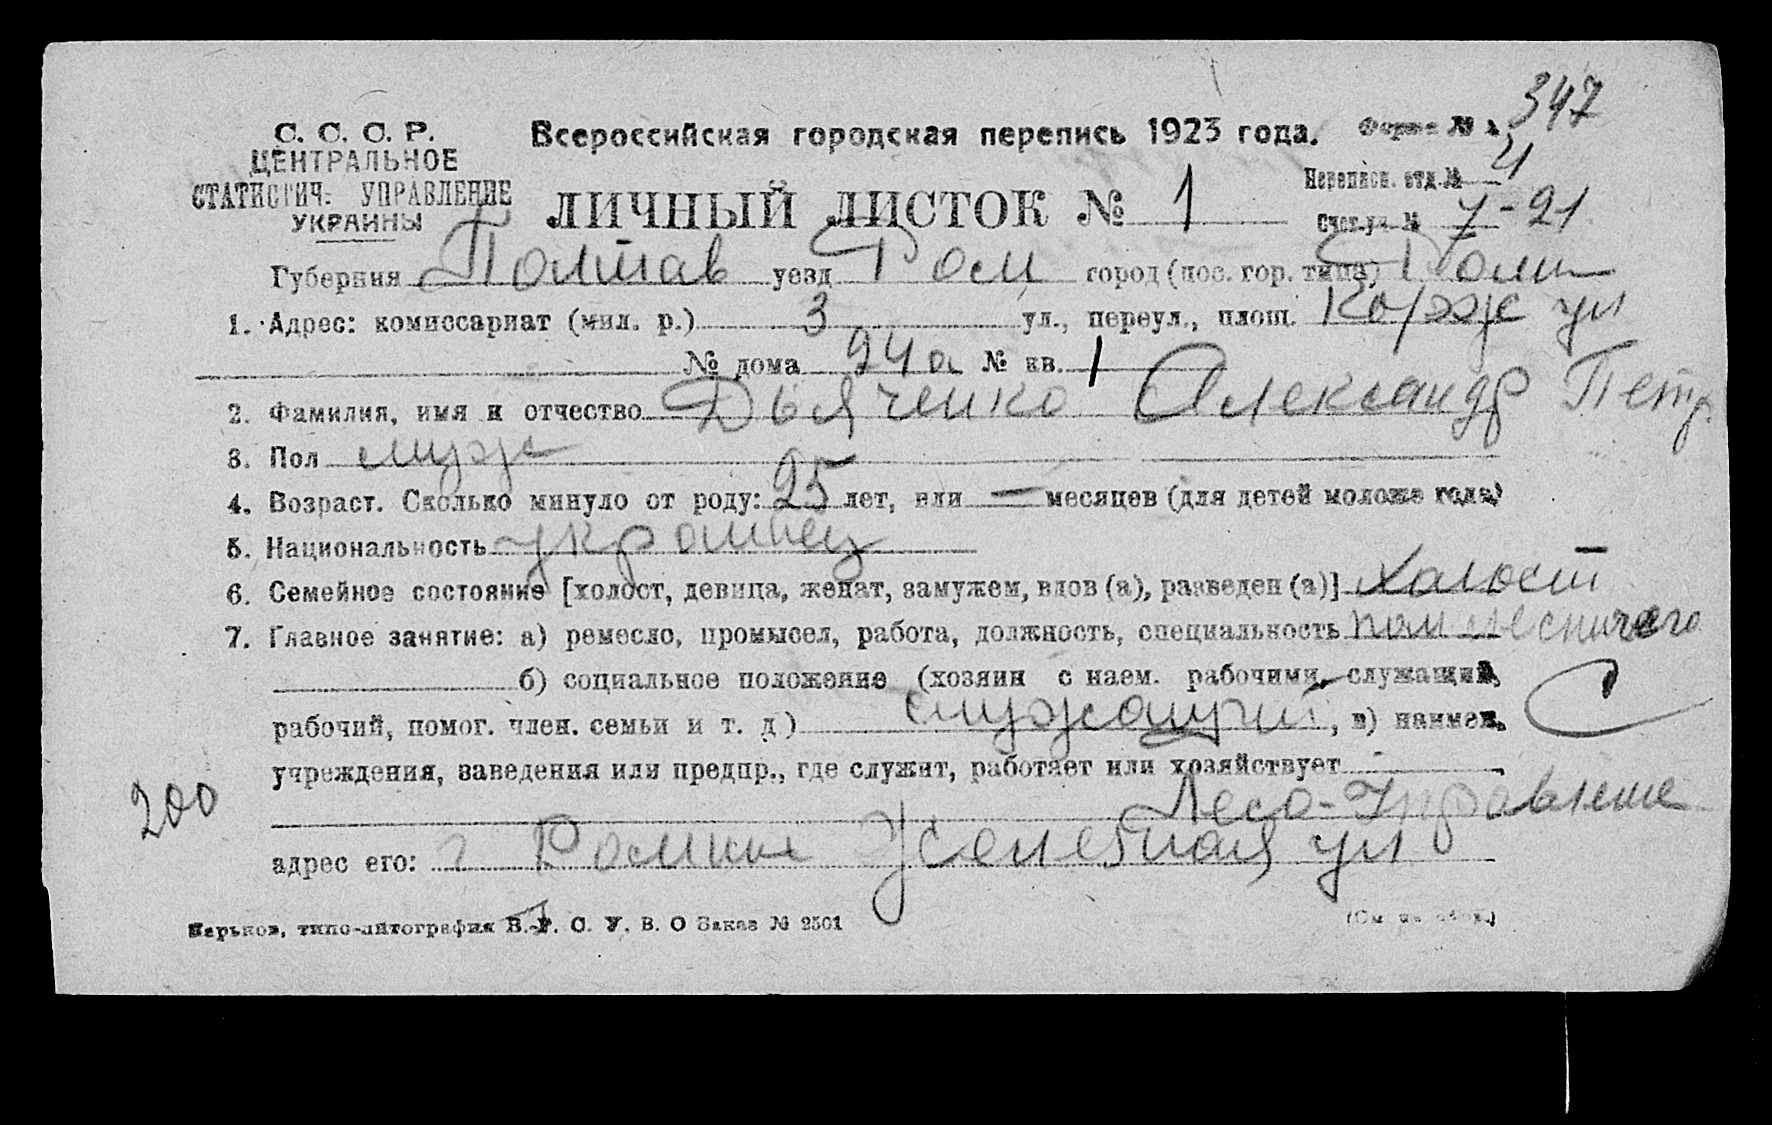 347
С. С. С. Р.
ЦЕНТРАЛЬНОЕ
СТАТИСТИЧ. УПРАВЛЕНИЕ
УКРАИНЫ
Всероссийская городская перепись 1923 года.
Форма №
ЛИЧНЫЙ ЛИСТОК № 1
Переписн. отд. № 4
Счет. уч. № 7-21
Губерния Полтав уезд Ром город (пос. гор. типа) Ромн
1. Адрес: комиссариат (мил. р.) 3 ул., переул., площ. Корж ул
№ дома 24а № кв. 1
2. Фамилия, имя и отчество Дьяченко Александр Петр.
3. Пол мужс
4. Возраст. Сколько минуло от роду: 25 лет, или — месяцев (для детей моложе года)
5. Национальность украинец
6. Семейное состояние [холост, девица, женат, замужем, вдов (а), разведен (а)] холост
7. Главное занятие: а) ремесло, промысел, работа, должность, специальность пом лесничего
б) социальное положение (хозяин с наем. рабочими, служащий,
рабочий, помог. член. семьи и т. д) служащий, в) наимен.
С
учреждения, заведения или предпр., где служит, работает или хозяйствует
200
Лесо-Управление
адрес его: г Ромны ул
Харьков, типо-литография В. У. С. У. В. О Заказ № 2501
(См на обор.)